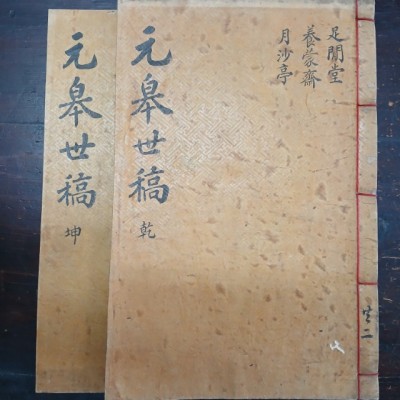 是閒堂
養蒙齋
月沙亭
元皐世稿 乾
元皐世稿 坤